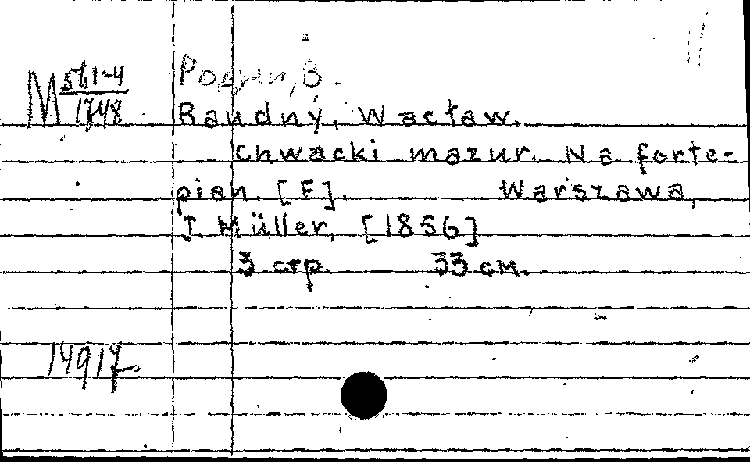 M 561-4
1748
В.
Raudný, Wacław.
Chwacki mazur. Na forte-
pian. [F]. Warszawa,
J. Müller, [1856]
3 стр. 33 см.
14917